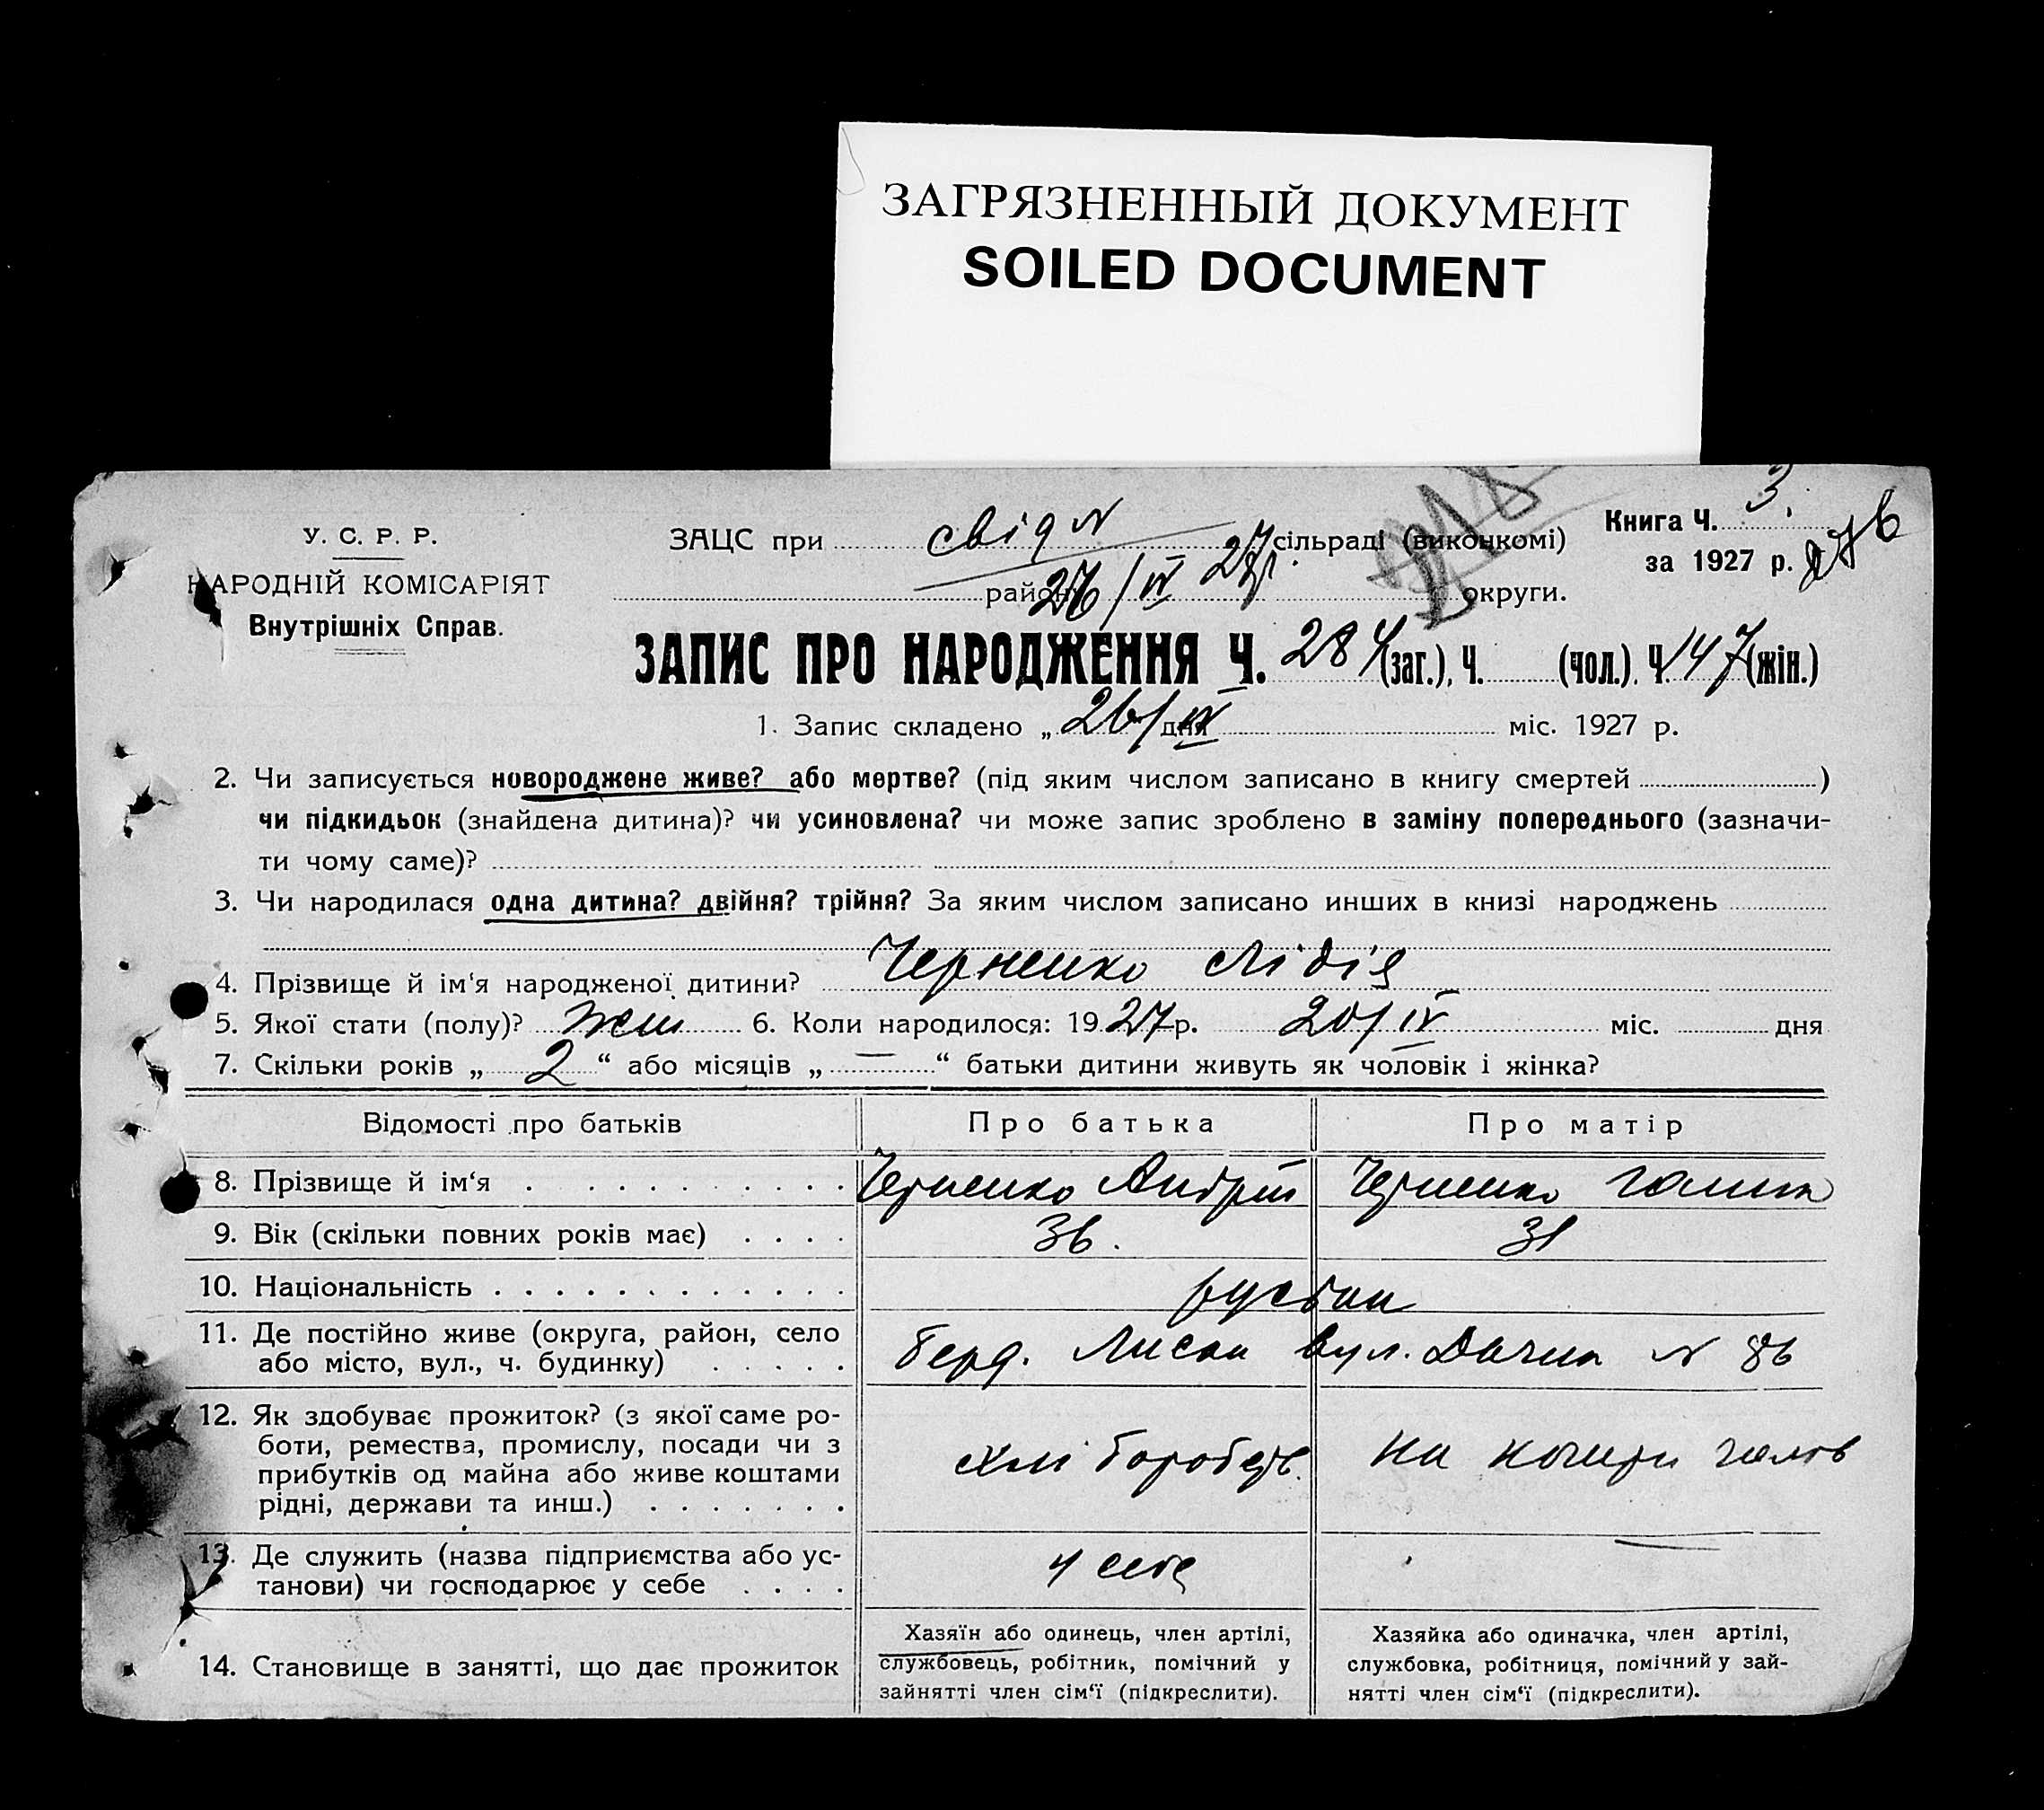 ЗАГРЯЗНЕННЫЙ ДОКУМЕНТ
SOILED DOCUMENT
Книга Ч. 3.
У. С. Р. Р.
ЗАЦС при свід N сільраді (виконкомі)
за 1927 р.
НАРОДНІЙ КОМІСАРІЯТ
району 26/IV 27р. округи.
Внутрішніх Справ.
ЗАПИС ПРО НАРОДЖЕННЯ Ч. 284 (заг.), Ч. (чол.). Ч. 147 (жін.)
1. Запис складено „ 26/IV дня міс. 1927 р.
2. Чи записується новороджене живе? або мертве? (під яким числом записано в книгу смертей )
чи підкидьок (знайдена дитина)? чи усиновлена? чи може запис зроблено в заміну попереднього (зазначи-
ти чому саме)?
3. Чи народилася одна дитина? двійня? трійня? За яким числом записано инших в книзі народжень
4. Прізвище й ім‘я народженої дитини? Черненко Лідія
5. Якої стати (полу)? жін 6. Коли народилося: 1927 р. 20/IV міс. дня
7. Скільки років „ 2 “ або місяців „ — “ батьки дитини живуть як чоловік і жінка?
Відомості про батьків Про батька Про матір
8. Прізвище й ім‘я Черненко Андрій Черненко Галина
9. Вік (скільки повних років має) 36. 31
10. Національність
11. Де постійно живе (округа, район, село
або місто, вул., ч. будинку) Берд. Лиски вул. Дачна N 86
12. Як здобуває прожиток? (з якої саме ро-
боти, ремества, промислу, посади чи з
прибутків од майна або живе коштами
рідні, держави та инш.) хліборобств.
13. Де служить (назва підприємства або ус-
танови) чи господарює у себе у себе
14. Становище в занятті, що дає прожиток
Хазяїн або одинець, член артілі,
службовець, робітник, помічний у
зайнятті член сім‘ї (підкреслити).
Хазяйка або одиначка, член артілі,
службовка, робітниця, помічний у зай-
нятті член сім‘ї (підкреслити).